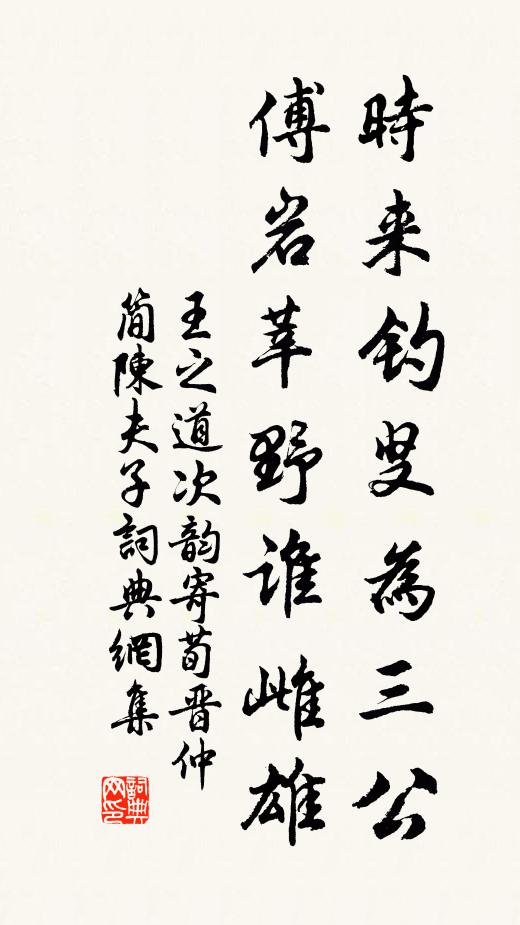 時来釣叟為三公
傅岩莘野谁雌雄
王之道次韵寄荀晋仲
简陳夫子詞典網集
詞典
网印